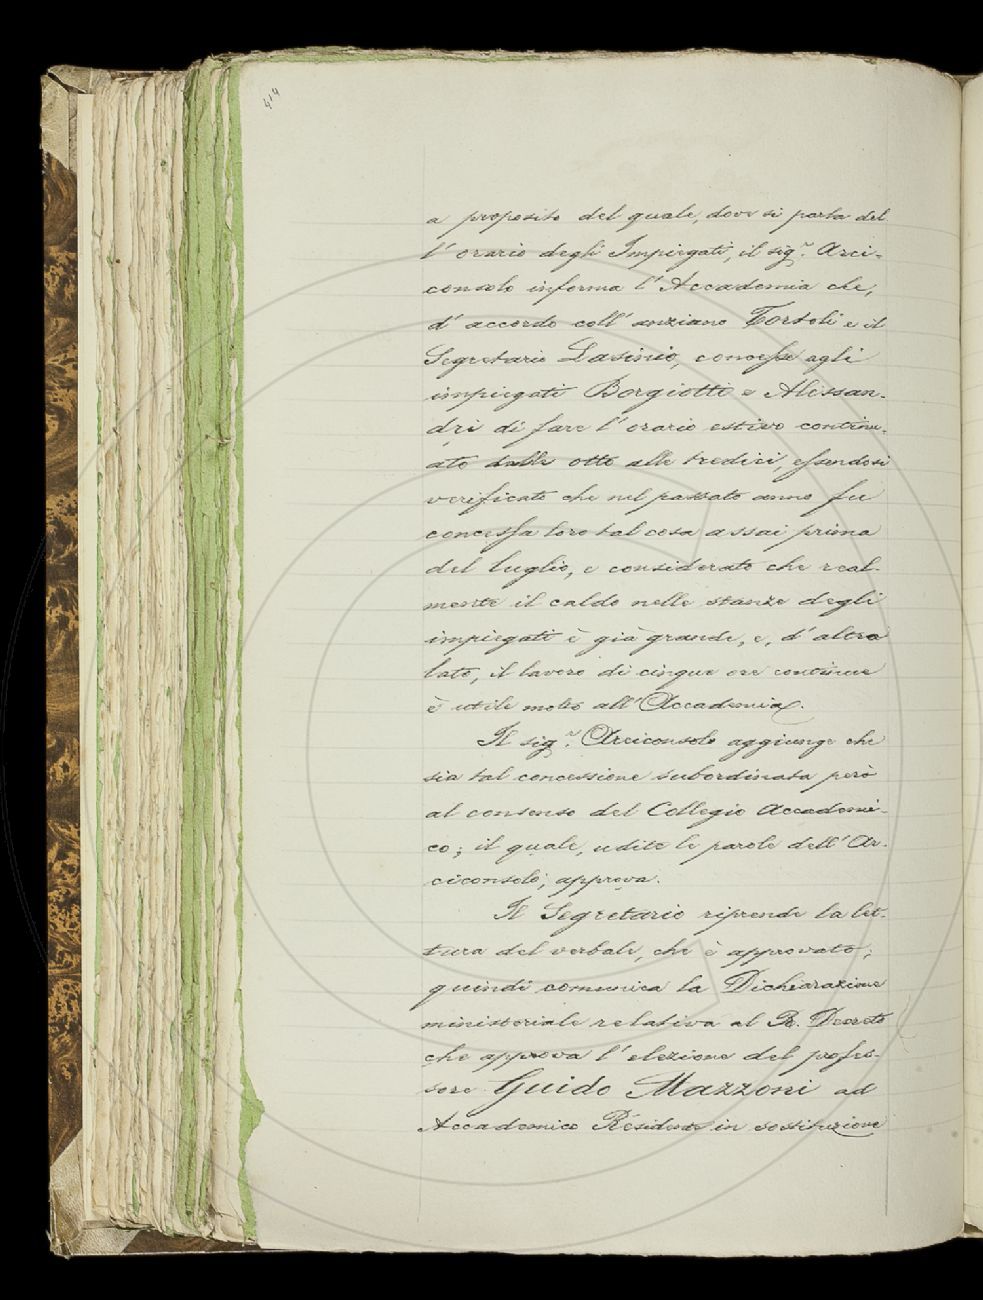 414
a proposito del quale, dove si parla del
l'orario degli Impiegati, il sigr. Arci-
consolo informa l'Accademia che,
d'accordo coll'anziano Tortoli e il
Segretario Lasinio, concesse agli
impiegati Borgiotti e Alessan-
dri di fare l'orario estivo continu-
ato dalle otto alle tredici, essendosi
verificato che nel passato anno fu
concessa loro tal cosa assai prima
del luglio, e considerato che real-
mente il caldo nelle stanze degli
impiegati è già grande, e, d'altro
lato, il lavoro di cinque ore continue
è utile molto all'Accademia.
Il sigr. Arciconsolo aggiunge che
sia tal concessione subordinata però
al consenso del Collegio Accademi-
co; il quale, udite le parole dell'Ar-
ciconsolo, approva.
Il Segretario riprende la let-
tura del verbale, che è approvato;
quindi comunica la Dichiarazione
ministeriale relativa al R. Decreto
che approva l'elezione del profes-
sore Guido Mazzoni ad
Accademico Residente in sostituzione